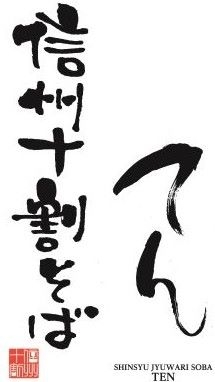 信州十割そば
てん
SHINSYU JYUWARI SOBA
TEN